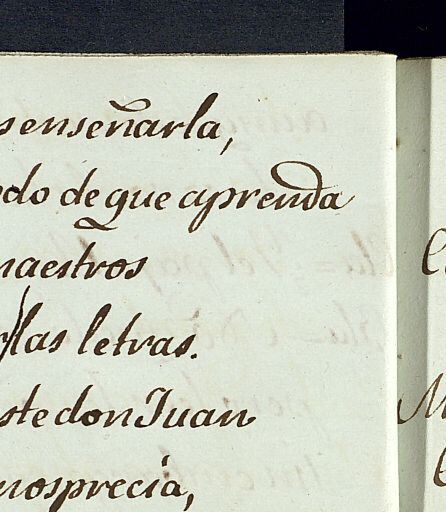 senseñarla,
do de que aprenda
maestros
las letras.
ste don Juan
nosprecia,